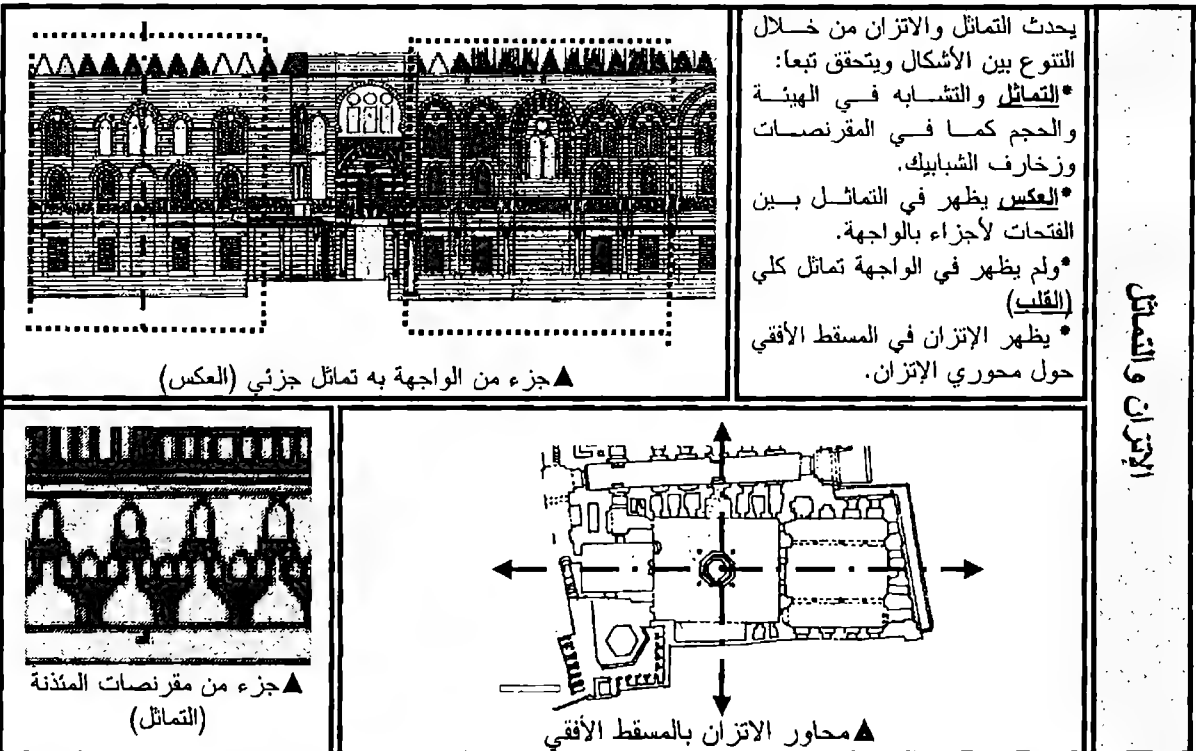 الإتزان والتماثل
يحدث التماثل والاتزان من خـــلال
التنوع بين الأشكال ويتحقق تبعا:
*التماثل والتشـــابه فـــي الهيئـــة
والحجم كمـــا فـــي المقرنصـــات
وزخارف الشبابيك.
*العكس يظهر في التماثـــل بـــين
الفتحات لأجزاء بالواجهة.
*ولم يظهر في الواجهة تماثل كلي
(القلب)
* يظهر الإتزان في المسقط الأفقي
حول محوري الإتزان.
▲جزء من الواجهة به تماثل جزئي (العكس)
▲محاور الاتزان بالمسقط الأفقي
▲جزء من مقرنصات المئذنة
(التماثل)